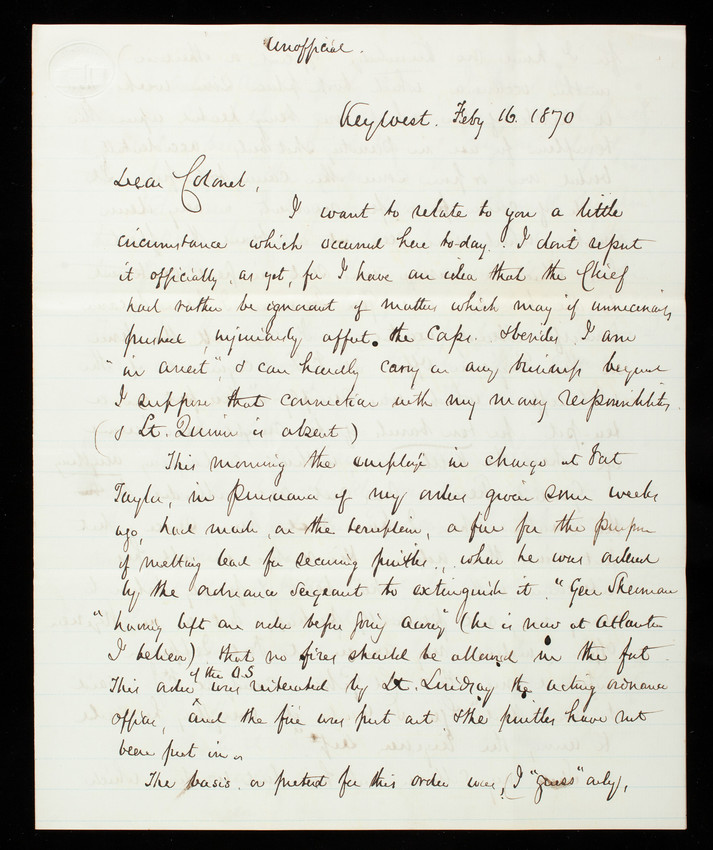 Unofficial.
Key West. Feby 16. 1870
Dear Colonel,
I want to relate to you a little
circumstance which occurred here to-day. I don't report
it officially, as yet, for I have an idea that the Chief
had rather be ignorant of matters which may if unnecessarily
pushed, injuriously affect the Corps. & besides I am
"in arrest", & can hardly carry on any business beyond
I suppose that connection with my money responsibilities
(& Lt. Quinn is absent)
This morning the employé in charge at Fort
Taylor, in pursuance of my orders given some weeks
ago, had made, on the terreplein, a fire for the purpose
of melting lead for securing pintles, when he was ordered
by the ordnance sergeant to extinguish it "Gen Sherman
"having left an order before going away" (he is now at Atlanta
I believe) that no fires should be allowed in the fort.
This order of the O.S. was reiterated by Lt. Lindsay the acting ordnance
officer, and the fire was put out & the pintles have not
been put in.
The basis or pretext for this order was, (I "guess" only),